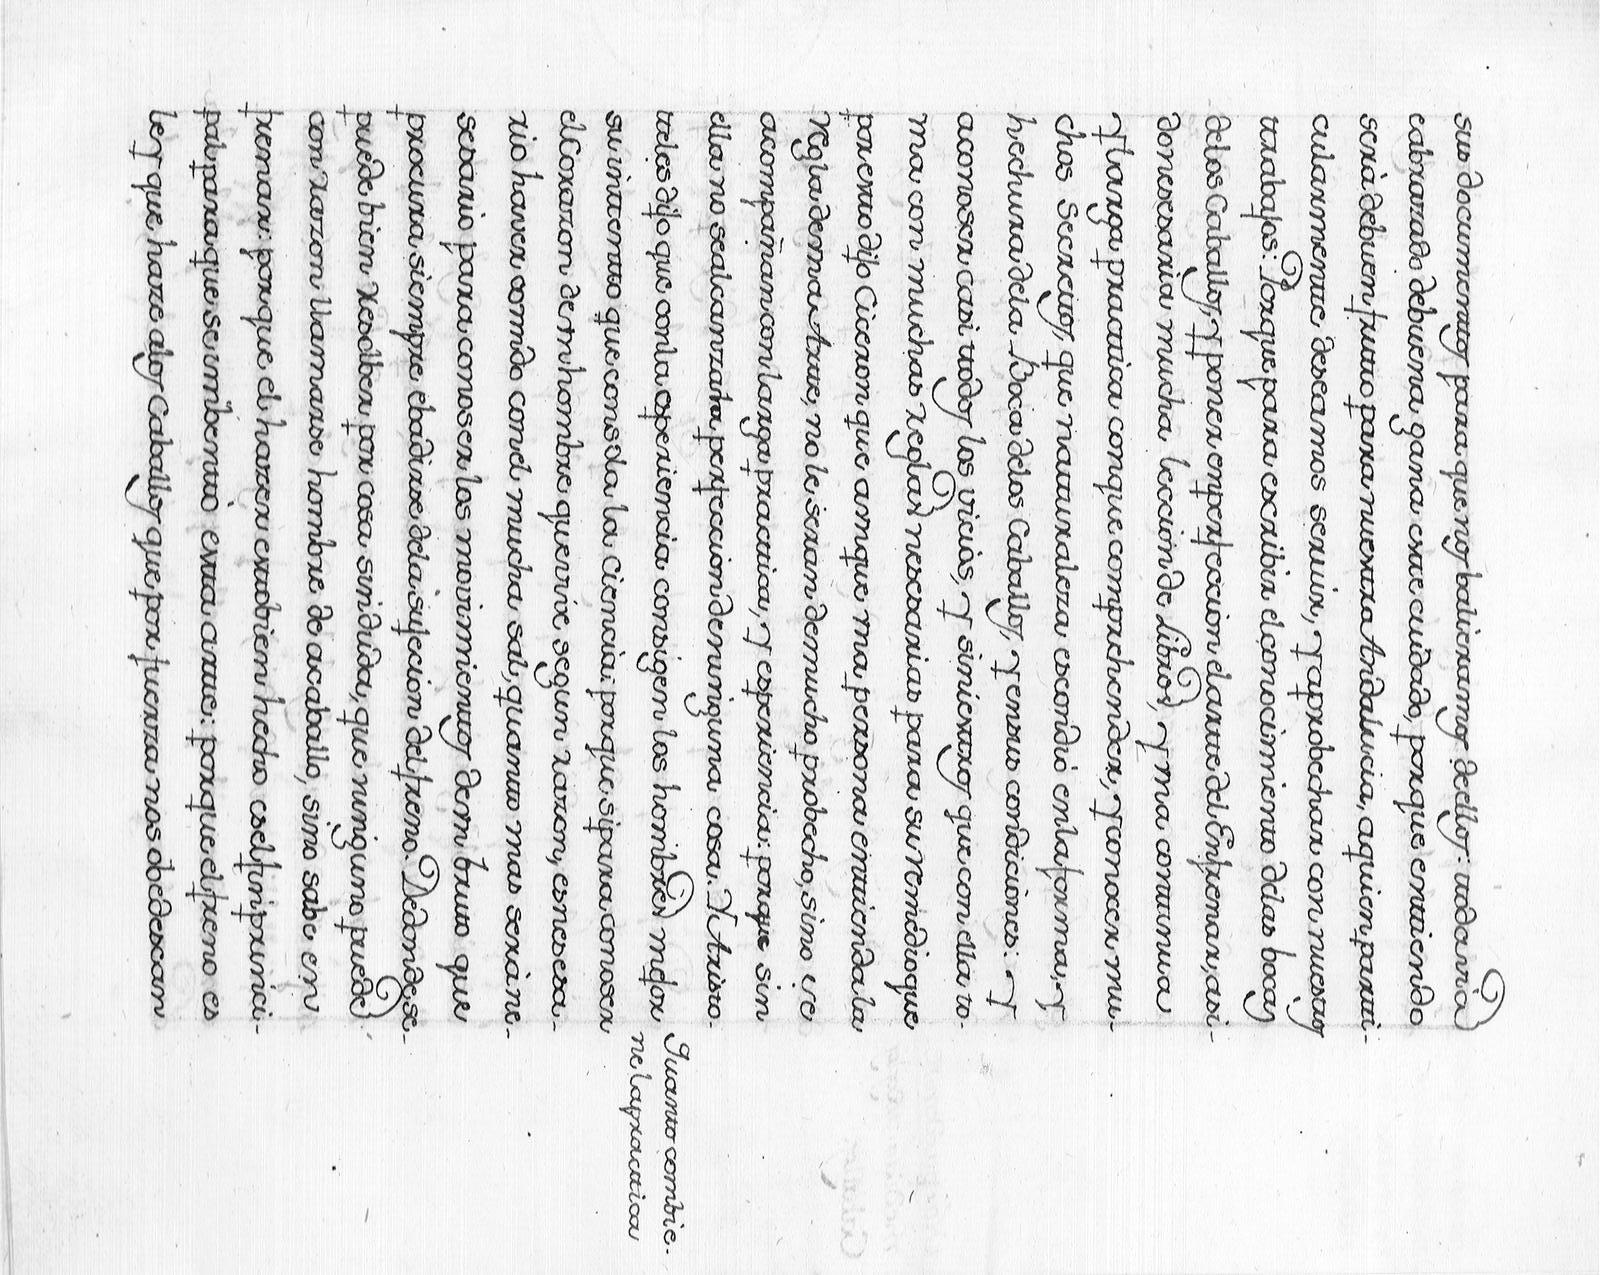 sus documentos para que nos balieramos de ellos: toda via
cabrando debuena gana este cuidado, porque entiendo
será debuen fruto para nuestra Andalucia, a quien parti-
cularmente deseamos servir, Y aprobechar con nuestros
trabajos: Porque para escribir el conocimiento delas bocas
delos Caballos, Y poner en perfeccion el arte del Enfrenar, asi-
donesesaria mucha leccion de Libros, Y ma continua
Y larga practica conque comprehender, Y conocer mu-
chos secretos, que naturaleza escondió en la forma, Y
hechura dela Boca delos Caballos, Y en sus condiciones: Y
a conoser casi todos los vicios, Y siniestros que con ella to-
ma con muchas Reglas nesesarias para su remedio que
por esto dijo Ciceron que aunque ma persona entienda la
Regla de una Arte, no le seran de mucho probecho, sino se
acompañan con larga practica, Y esperiencia: porque sin
ella no se alcanzata perfeccion de ninguna cosa. Y Aristo-
teles dijo que con la esperiencia consigen los hombres mejor
su intento que con sola la Ciencia: porque, si para conoser
el Corazon de un hombre que vive segun razon, es nesesa-
rio haver comido con el mucha sal, quanto mas será ne-
sesario para conoser los movimientos de un bruto que
procura siempre ebadirse dela sujecion del freno. De donde se-
puede bien Resolber por cosa sin duda, que ninguno puede
con razon llamarse hombre de acaballo, sino sabe en
frenar: porque el hazer esto bien hecho es el fin princi-
pal para que se imbentó esta arte: porque el freno es
ley que haze alos Caballos que por fuerza nos obedescan
Quanto combie-
ne la practica